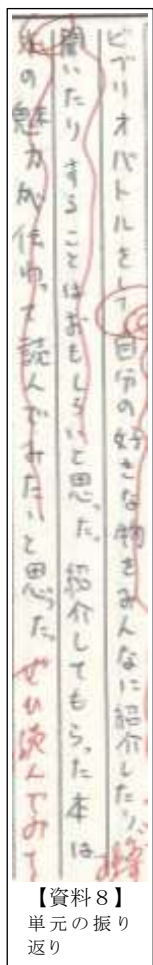 ビブリオバトルをして自分の好きな物をみんなに紹介したり、
聞いたりすることはおもしろいと思った。紹介してもらった本は
の魅力が伝わって読んでみたいと思った。ぜひ読んでみて
【資料8】
単元の振り
返り